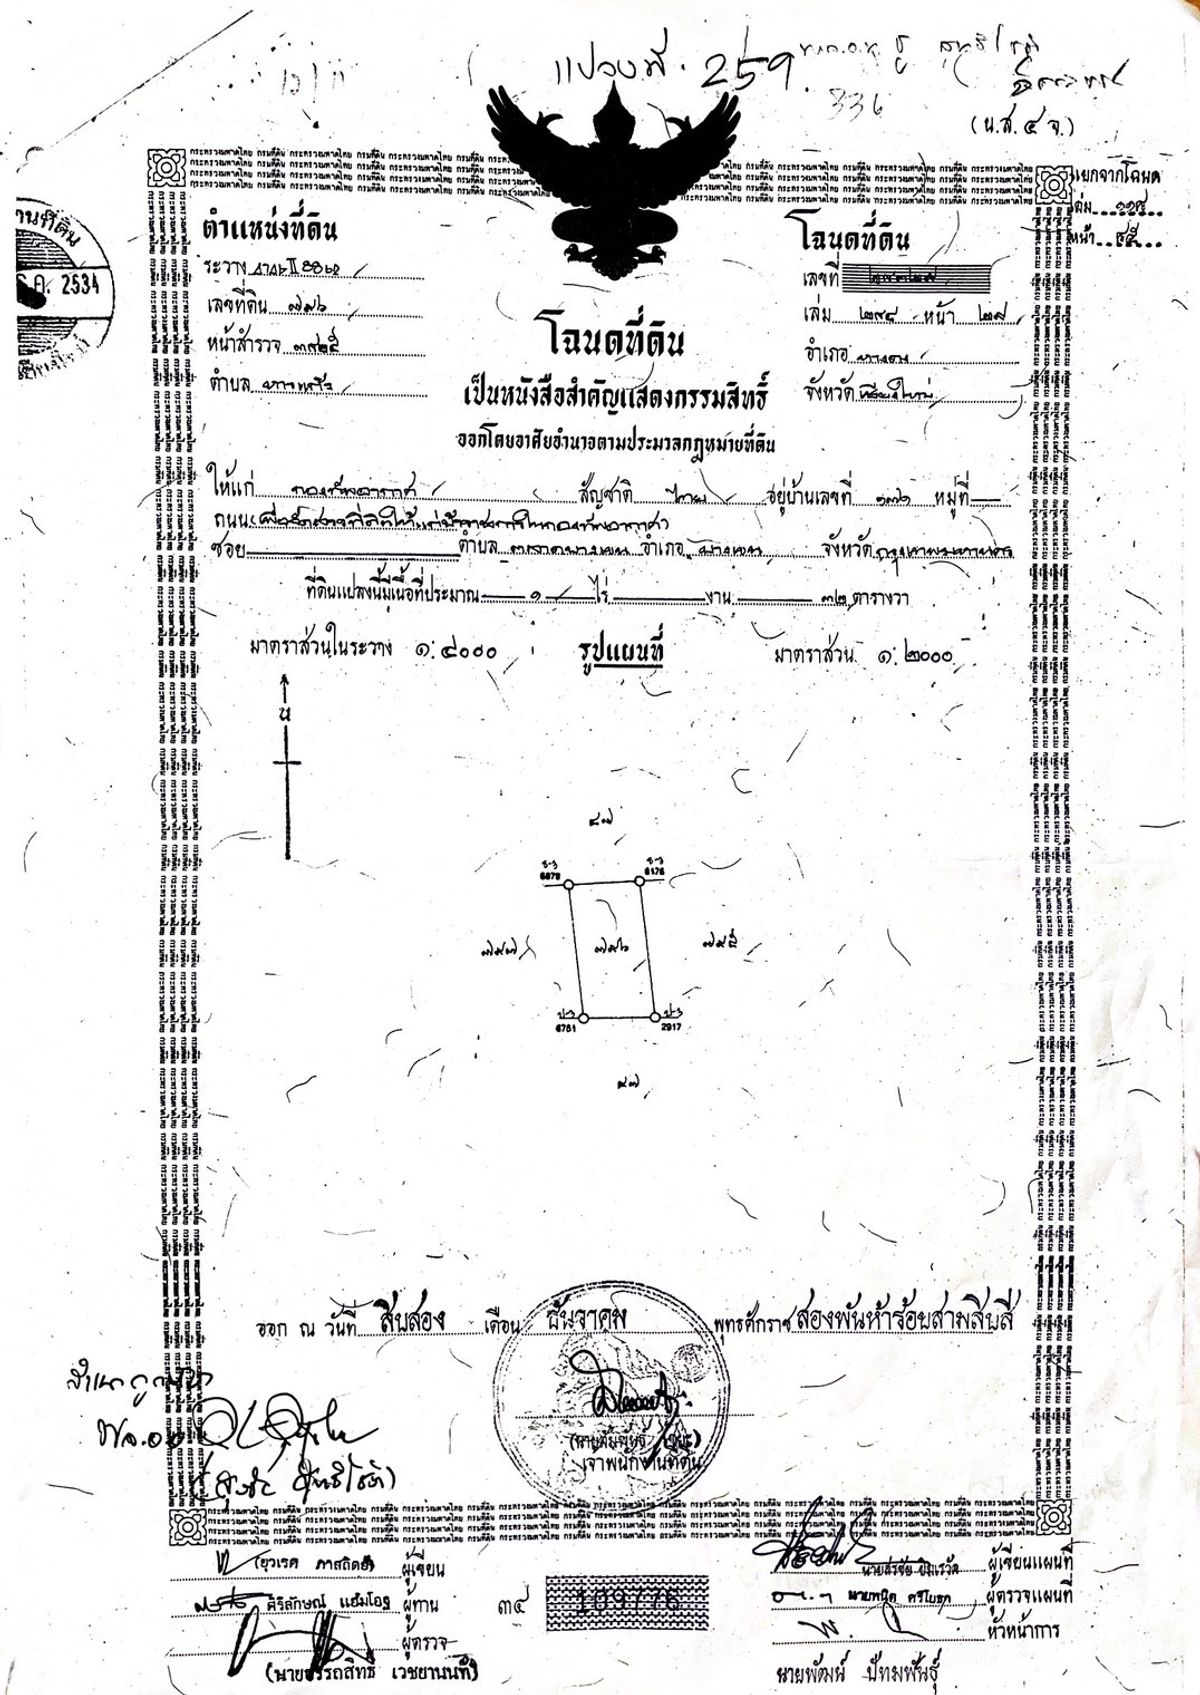 แปลงที่ 259
336
(น.ส. ๔ จ.)
แยกจากโฉนด
เล่ม ๑๑๕
หน้า ๙๕
ตำแหน่งที่ดิน
ระวาง
เลขที่ดิน ๗๙๖
หน้าสำรวจ ๓๙๒๕
ตำบล
2534
โฉนดที่ดิน
เลขที่
เล่ม ๒๙๔ หน้า ๒๙
อำเภอ หางดง
จังหวัด เชียงใหม่
โฉนดที่ดิน
เป็นหนังสือสำคัญแสดงกรรมสิทธิ์
ออกโดยอาศัยอำนาจตามประมวลกฎหมายที่ดิน
ให้แก่ กองทัพอากาศ สัญชาติ ไทย อยู่บ้านเลขที่ ๑๗๑ หมู่ที่
ถนน (เพื่อจัดสรรที่ดินให้แก่ข้าราชการในกองทัพอากาศ)
ซอย ตำบล ตลาดบางเขน อำเภอ บางเขน จังหวัด กรุงเทพมหานคร
ที่ดินแปลงนี้มีเนื้อที่ประมาณ ๑ ไร่ งาน ๓๒ ตารางวา
มาตราส่วนในระวาง ๑:๔๐๐๐ รูปแผนที่ มาตราส่วน ๑:๒๐๐๐
น
๔๗
6878 6176
๗๙๗ ๗๙๖ ๗๙๕
6751 2917
๔๗
ออก ณ วันที่ สิบสอง เดือน ธันวาคม พุทธศักราช สองพันห้าร้อยสามสิบสี่
เจ้าพนักงานที่ดิน
สำเนาถูกต้อง
(ยุวเรศ ภาสถิตย์) ผู้เขียน
ศิริลักษณ์ แย้มโอฐ ผู้ทาน
ผู้ตรวจ
(นายอรรถสิทธิ์ เวชยานนท์)
๓๔ 109776
ผู้เขียนแผนที่
ผู้ตรวจแผนที่
หัวหน้าการ
นายพัฒน์ ปัทมพันธุ์